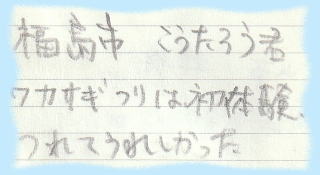 福島市 こうたろう君
ワカすぎつりは初体験、
つれてうれしかった